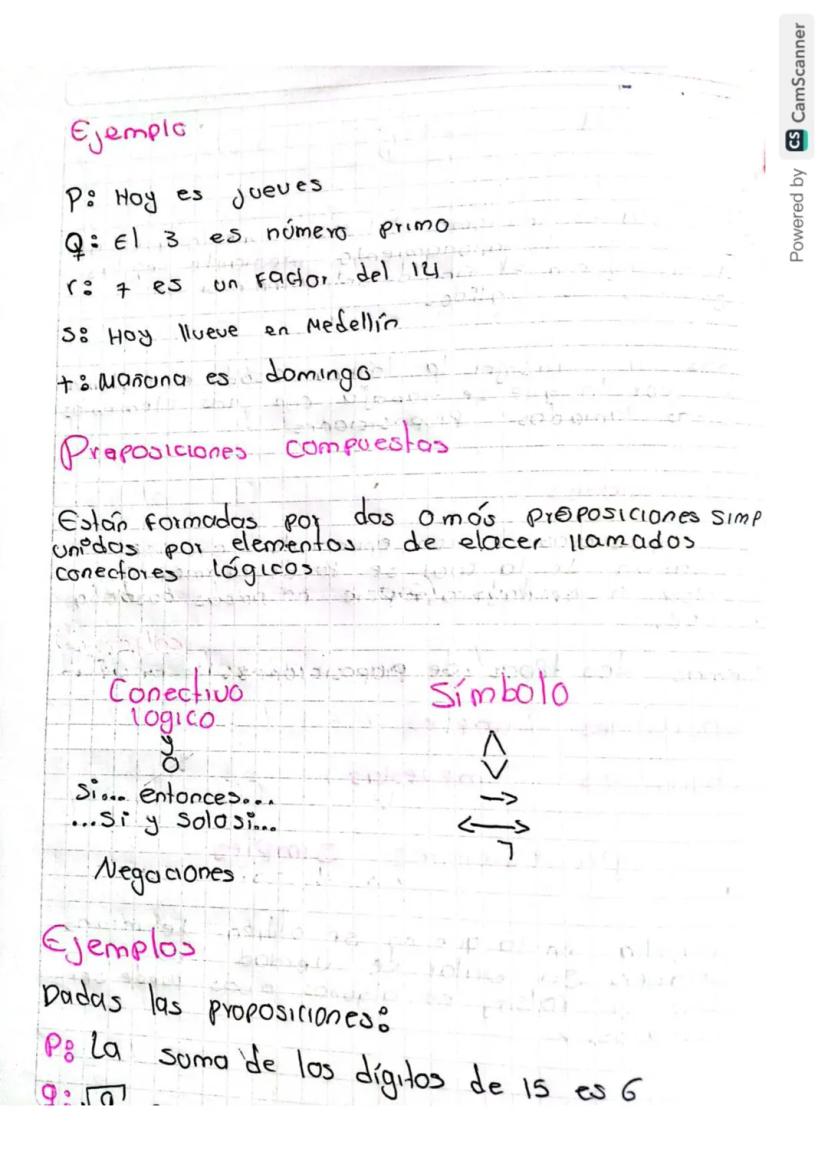 Ejemplo
P: Hoy es jueves
Q: El 3 es número primo
r: 7 es un factor del 14
S: Hoy llueve en Medellín
t: Mañana es domingo
Proposiciones compuestas
Están formadas por dos o más proposiciones simp
unidas por elementos de elacer llamados
conectores lógicos
Conectivo Símbolo
logico
y ∧
o ∨
Si... entonces... →
...Si y solo si... ↔
Negaciones ¬
Ejemplos
Dadas las proposiciones:
P: La suma de los dígitos de 15 es 6
q: √9
Powered by CS CamScanner